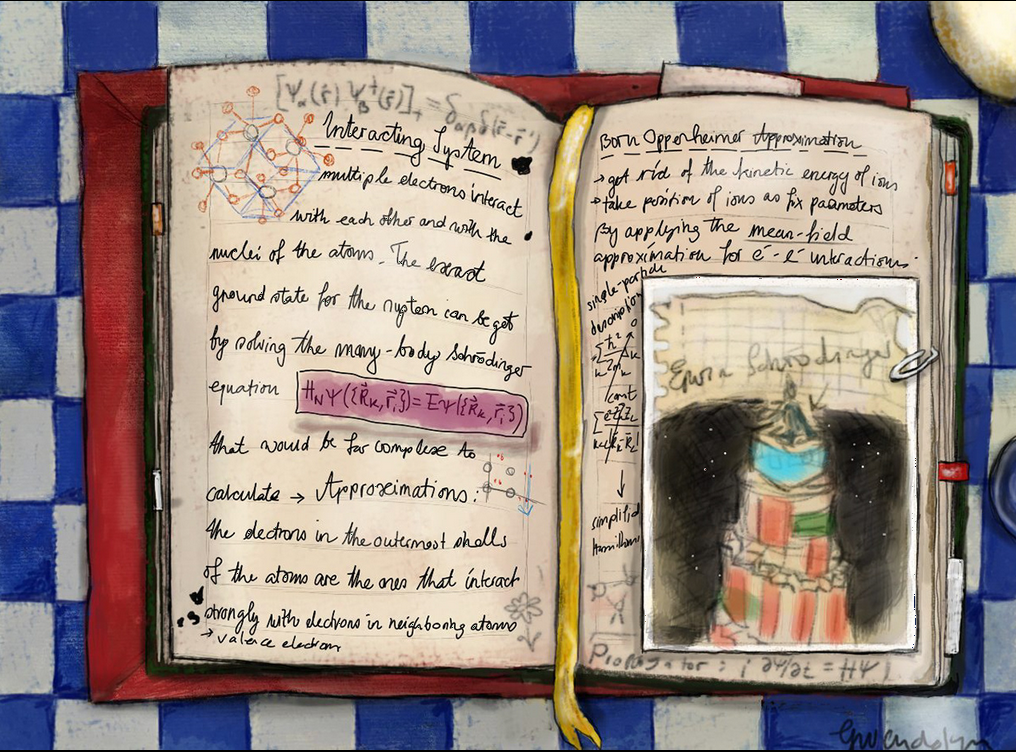 [Ψα(r⃗) Ψβ†(r⃗)]₊ = δαβδ(r⃗-r⃗')
Interacting System
multiple electrons interact
with each other and with the
nuclei of the atoms. The exact
ground state for the system can be get
by solving the many-body Schrödinger
equation HNΨ({R⃗k,r⃗i})=EΨ({R⃗k,r⃗i})
that would be far complexe to
calculate → Approximations:
the electrons in the outermost shells
of the atoms are the ones that interact
strongly with electrons in neighboring atoms
→ valence electrons
Born Oppenheimer Approximation
→ get rid of the kinetic energy of ions
→ take position of ions as fix parameters
By applying the mean-field
approximation for e⁻-e⁻ interactions.
single-particle
description
const
↓
simplified
Hamiltoni
Erwin Schrödinger
Propagator: i ∂Ψ/∂t = HΨ
Gwendolyn